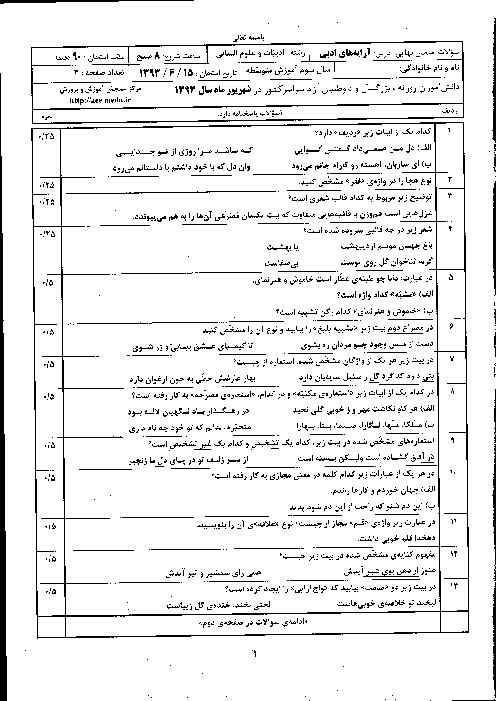 باسمه تعالی
سؤالات امتحان نهایی درس: آرایه‌های ادبی رشته: ادبیات و علوم انسانی ساعت شروع: ۸ صبح مدت امتحان: ۹۰ دقیقه
نام و نام خانوادگی: سال سوم آموزش متوسطه تاریخ امتحان: ۱۵ / ۶ / ۱۳۹۳ تعداد صفحه: ۳
دانش‌آموزان روزانه، بزرگسال و داوطلبان آزاد سراسر کشور در شهریور ماه سال ۱۳۹۳ مرکز سنجش آموزش و پرورش
http://aee.medu.ir
ردیف سؤالات (پاسخنامه دارد) نمره
۱ کدام یک از ابیات زیر «ردیف» دارد؟ ۰/۲۵
الف) دل من همی‌داد گفتی گوایی که باشد مرا روزی از تو جدایی
ب) ای ساربان، آهسته رو کارام جانم می‌رود وان دل که با خود داشتم با دلستانم می‌رود
۲ نوع هجا را در واژه‌ی «فقر» مشخّص کنید. ۰/۲۵
۳ توضیح زیر مربوط به کدام قالب شعری است؟ ۰/۲۵
غزل‌هایی است هم‌وزن با قافیه‌هایی متفاوت که بیت یکسان مصرّعی آن‌ها را به هم می‌پیوندد.
۴ شعر زیر در چه قالبی سروده شده است؟ ۰/۲۵
باغ جهان موسم اردیبهشت با بهشت
گرید ثناخوان گل روی توست بی‌صفاست
۵ در عبارت: دانا چو طبله‌ی عطّار است خاموش و هنرنمای. ۰/۵
الف) «مشبّه» کدام واژه است؟
ب) «خاموش و هنرنمای» کدام رکن تشبیه است؟
۶ در مصراع دوم بیت زیر «تشبیه بلیغ» را بیابید و نوع آن را مشخّص کنید. ۰/۵
دست از مس وجود چو مردان ره بشوی تا کیمیای عشق بیابی و زر شوی
۷ در بیت زیر هر یک از واژگان مشخّص شده، استعاره از چیست؟ ۰/۵
بتی دارد که گرد گل ز سنبل سایه‌بان دارد بهار عارضش خطّی به خون ارغوان دارد
۸ در کدام یک از ابیات زیر «استعاره‌ی مکنیّه» و در کدام، «استعاره‌ی مصرّحه» به کار رفته است؟ ۰/۵
الف) هر کاو نکاشت مهر و ز خوبی گلی نچید در رهگذار باد نگهبان لاله بود
ب) ملکا، مها، نگارا، صنما، بتا، بهارا متحیّرم، ندانم که تو خود چه نام داری
۹ استعاره‌های مشخّص شده در بیت زیر، کدام یک تشخیص و کدام یک غیر تشخیص است؟ ۰/۵
در آفاق گشاده است ولیکن بسته است از سر زلف تو در پای دل ما زنجیر
۱۰ در هر یک از عبارات زیر کدام کلمه در معنی مجازی به کار رفته است؟ ۰/۵
الف) جهان خوردم و کارها راندم.
ب) این دم شنو که راحت از این دم شود پدید
۱۱ در عبارت زیر واژه‌ی «قلم» مجاز از چیست؟ نوع «علاقه»ی آن را بنویسید. ۰/۵
دهخدا قلم خوبی داشت.
۱۲ مفهوم کنایه‌ی مشخّص شده در بیت زیر چیست؟ ۰/۵
هنوز از دهن بوی شیر آیدش همی رای شمشیر و تیر آیدش
۱۳ در بیت زیر دو «صامت» بیابید که «واج آرایی» را ایجاد کرده است؟ ۰/۵
لبخند تو خلاصه‌ی خوبی‌هاست لختی بخند، خنده‌ی گل زیباست
«ادامه‌ی سؤالات در صفحه‌ی دوم»
۱